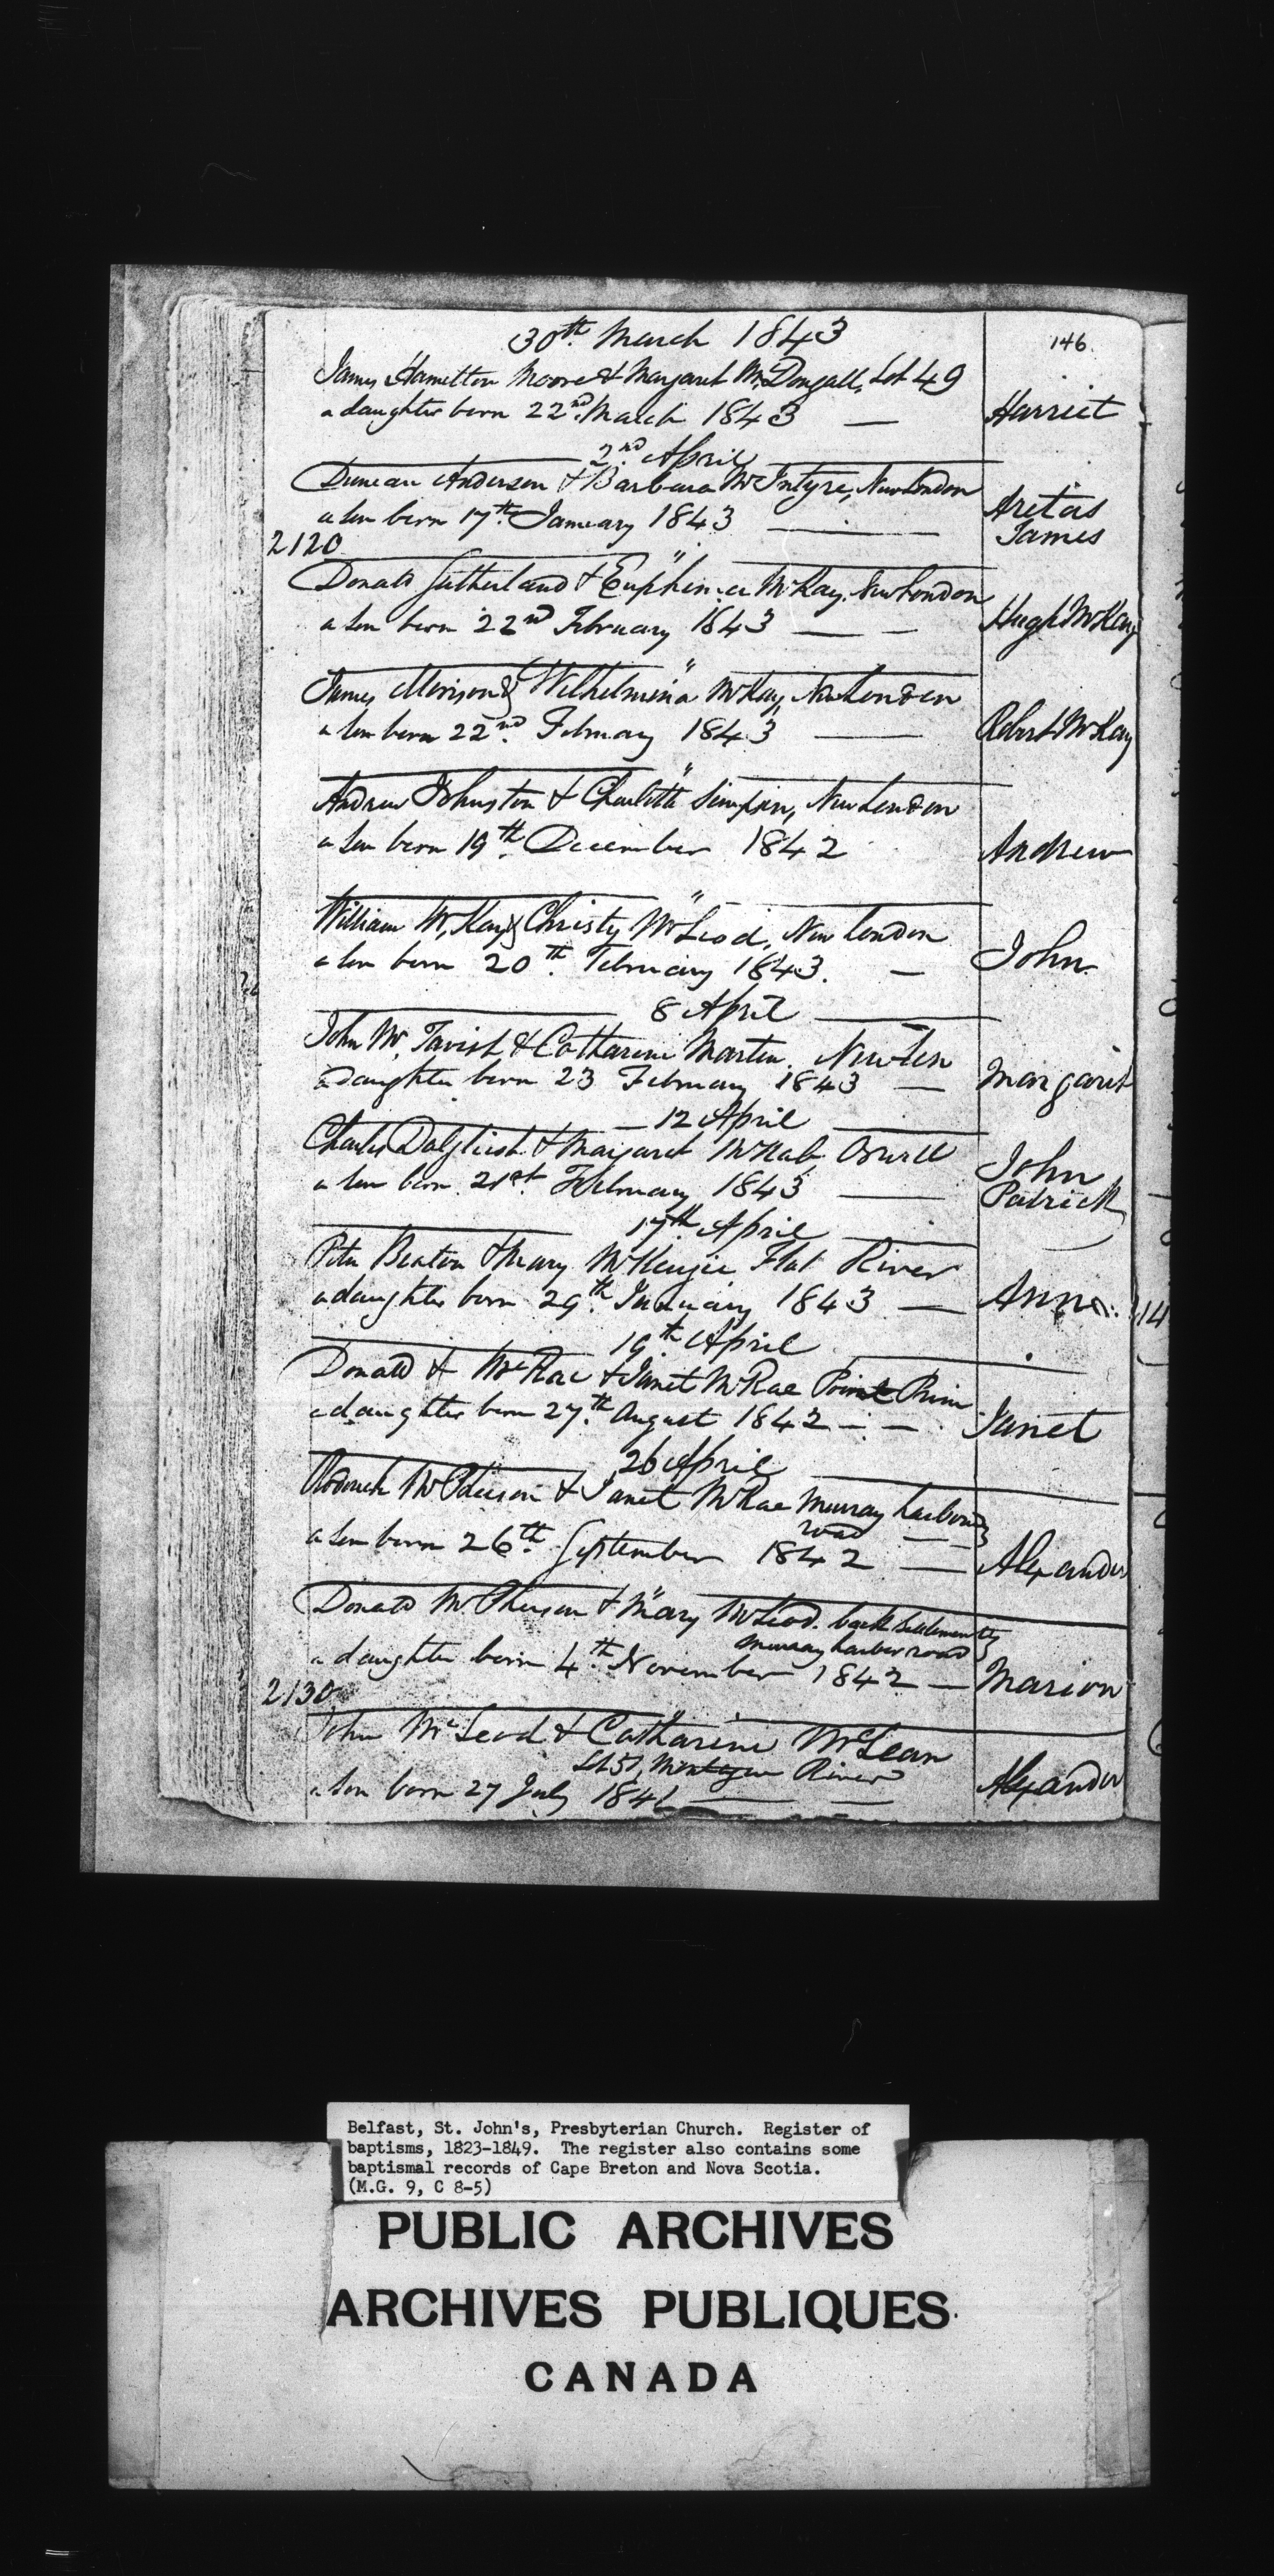 30th March 1843
146
James Hamilton Moore & Margaret McDougall, Lot 49
a daughter born 22nd March 1843 — Harriet
2nd April
Duncan Anderson & Barbara McIntyre, New London
a son born 17th January 1843 — Aretas James
2120
"
Donald Sutherland & Euphemia McKay, New London
a son born 22nd February 1843 — — Hugh McKay
"
James Morison & Wilhelmina McKay, New London
a son born 22nd February 1843 — Robert McKay
"
Andrew Johnston & Charlotte Simpson, New London
a son born 19th December 1842 Andrew
"
William McKay & Christy McLeod, New London
a son born 20th February 1843. — John
8 April
John McTavish & Catharine Martin,
a daughter born 23 February 1843 — Margaret
12 April
Charles Dalgliesh & Margaret McNab, Orwell
a son born 21st February 1843 — John Patrick
17th April
Peter Beaton & Mary McKenzie Flat River
a daughter born 29th January 1843 — Ann
19th April
Donald & McRae & Janet McRae Point Prim
a daughter born 27th August 1842 — — Janet
26 April
Roderick & Janet McRae Murray harbour
road
a son born 26th September 1842 — Alexander
"
Donald McPherson & Mary McLeod. back settlement
Murray harbor road
a daughter born 4th November 1842 — Marion
2130
John McLeod & Catharine McLean
Lot 51, Montague River
a son born 27 July 1841 — — Alexander
Belfast, St. John's, Presbyterian Church. Register of
baptisms, 1823-1849. The register also contains some
baptismal records of Cape Breton and Nova Scotia.
(M.G. 9, C 8-5)
PUBLIC ARCHIVES
ARCHIVES PUBLIQUES
CANADA